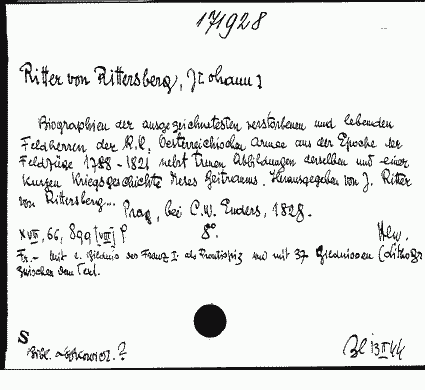 171928
Ritter von Rittersberg, J[ohann]
Biographien der ausgezeichnetesten verstorbenen und lebenden
Feldherren der K.K. Oesterreichischen Armee aus der Epoche der
Feldzüge 1788-1821 nebst treuen Abbildungen derselben und einer
kurzen Kriegsgeschichte dieses Zeitraums. Herausgegeben von J. Ritter
von Rittersberg...
Prag, bei C.W. Enders, 1828.
XVIII, 66, 899 [VIII] p 8°.
Fr.- mit e. Bildnis des Franz I. als Frontispiz und mit 37 Bildnissen (Lithogr.
zwischen dem Text.
S
Bibl. ?
13 II 44